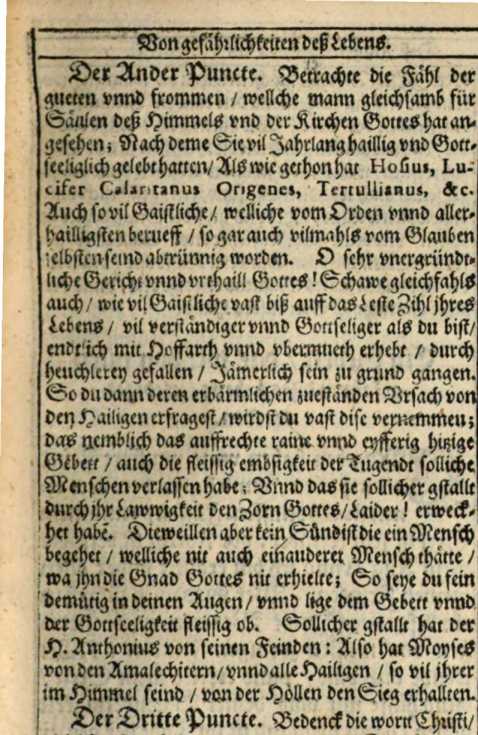 Von gefährlichkeiten deß Lebens.
Der Ander Puncte. Betrachte die Fähl der
gueten vnnd frommen / wellche mann gleichsamb für
Säulen deß Himmels vnd der Kirchen Gottes hat an-
gesehen; Nach deme Sie vil Jahrlang haillig vnd Gott-
seeliglich gelebt hatten / Als wie gethon hat Hosius, Lu-
cifer Calaritanus Origenes, Tertullianus, &c.
Auch so vil Gaistliche / welliche vom Orden vnnd aller-
hailligsten berueff / so gar auch vilmahls vom Glauben
selbsten seind abtrünnig worden. O sehr vnergründt-
liche Gericht vnnd vrthaill Gottes! Schawe gleichfahls
auch / wie vil Gaistliche vast biß auff das Leste Zihl jhres
Lebens / vil verständiger vnnd Gottseliger als du bist /
endtlich mit Hoffarth vnnd vbermueth erhebt / durch
heuchlerey gefallen / Jämerlich sein zu grund gangen.
So du dann deren erbärmlichen zueständen Vrsach von
den Hailigen erfragest / wirdst du vast dise vernemmen;
das nemblich das auffrechte raine vnnd eyfferig hitzige
Gebett / auch die fleissig embsigkeit der Tugendt solliche
Menschen verlassen habe; Vnnd das sie sollicher gstallt
durch jhr Lawwigkeit den Zorn Gottes / Laider! erweck-
het habē. Dieweillen aber kein Sünd ist die ein Mensch
begehet / welliche nit auch ein anderer Mensch thätte /
wa jhn die Gnad Gottes nit erhielte; So seye du fein
demütig in deinen Augen / vnnd lige dem Gebett vnnd
der Gottseeligkeit fleissig ob. Sollicher gstallt hat der
H. Anthonius von seinen Feinden: Also hat Moyses
von den Amalechitern / vnnd alle Hailigen / so vil jhrer
im Himmel seind / von der Höllen den Sieg erhallten.
Der Dritte Puncte. Bedenck die wort Christi /